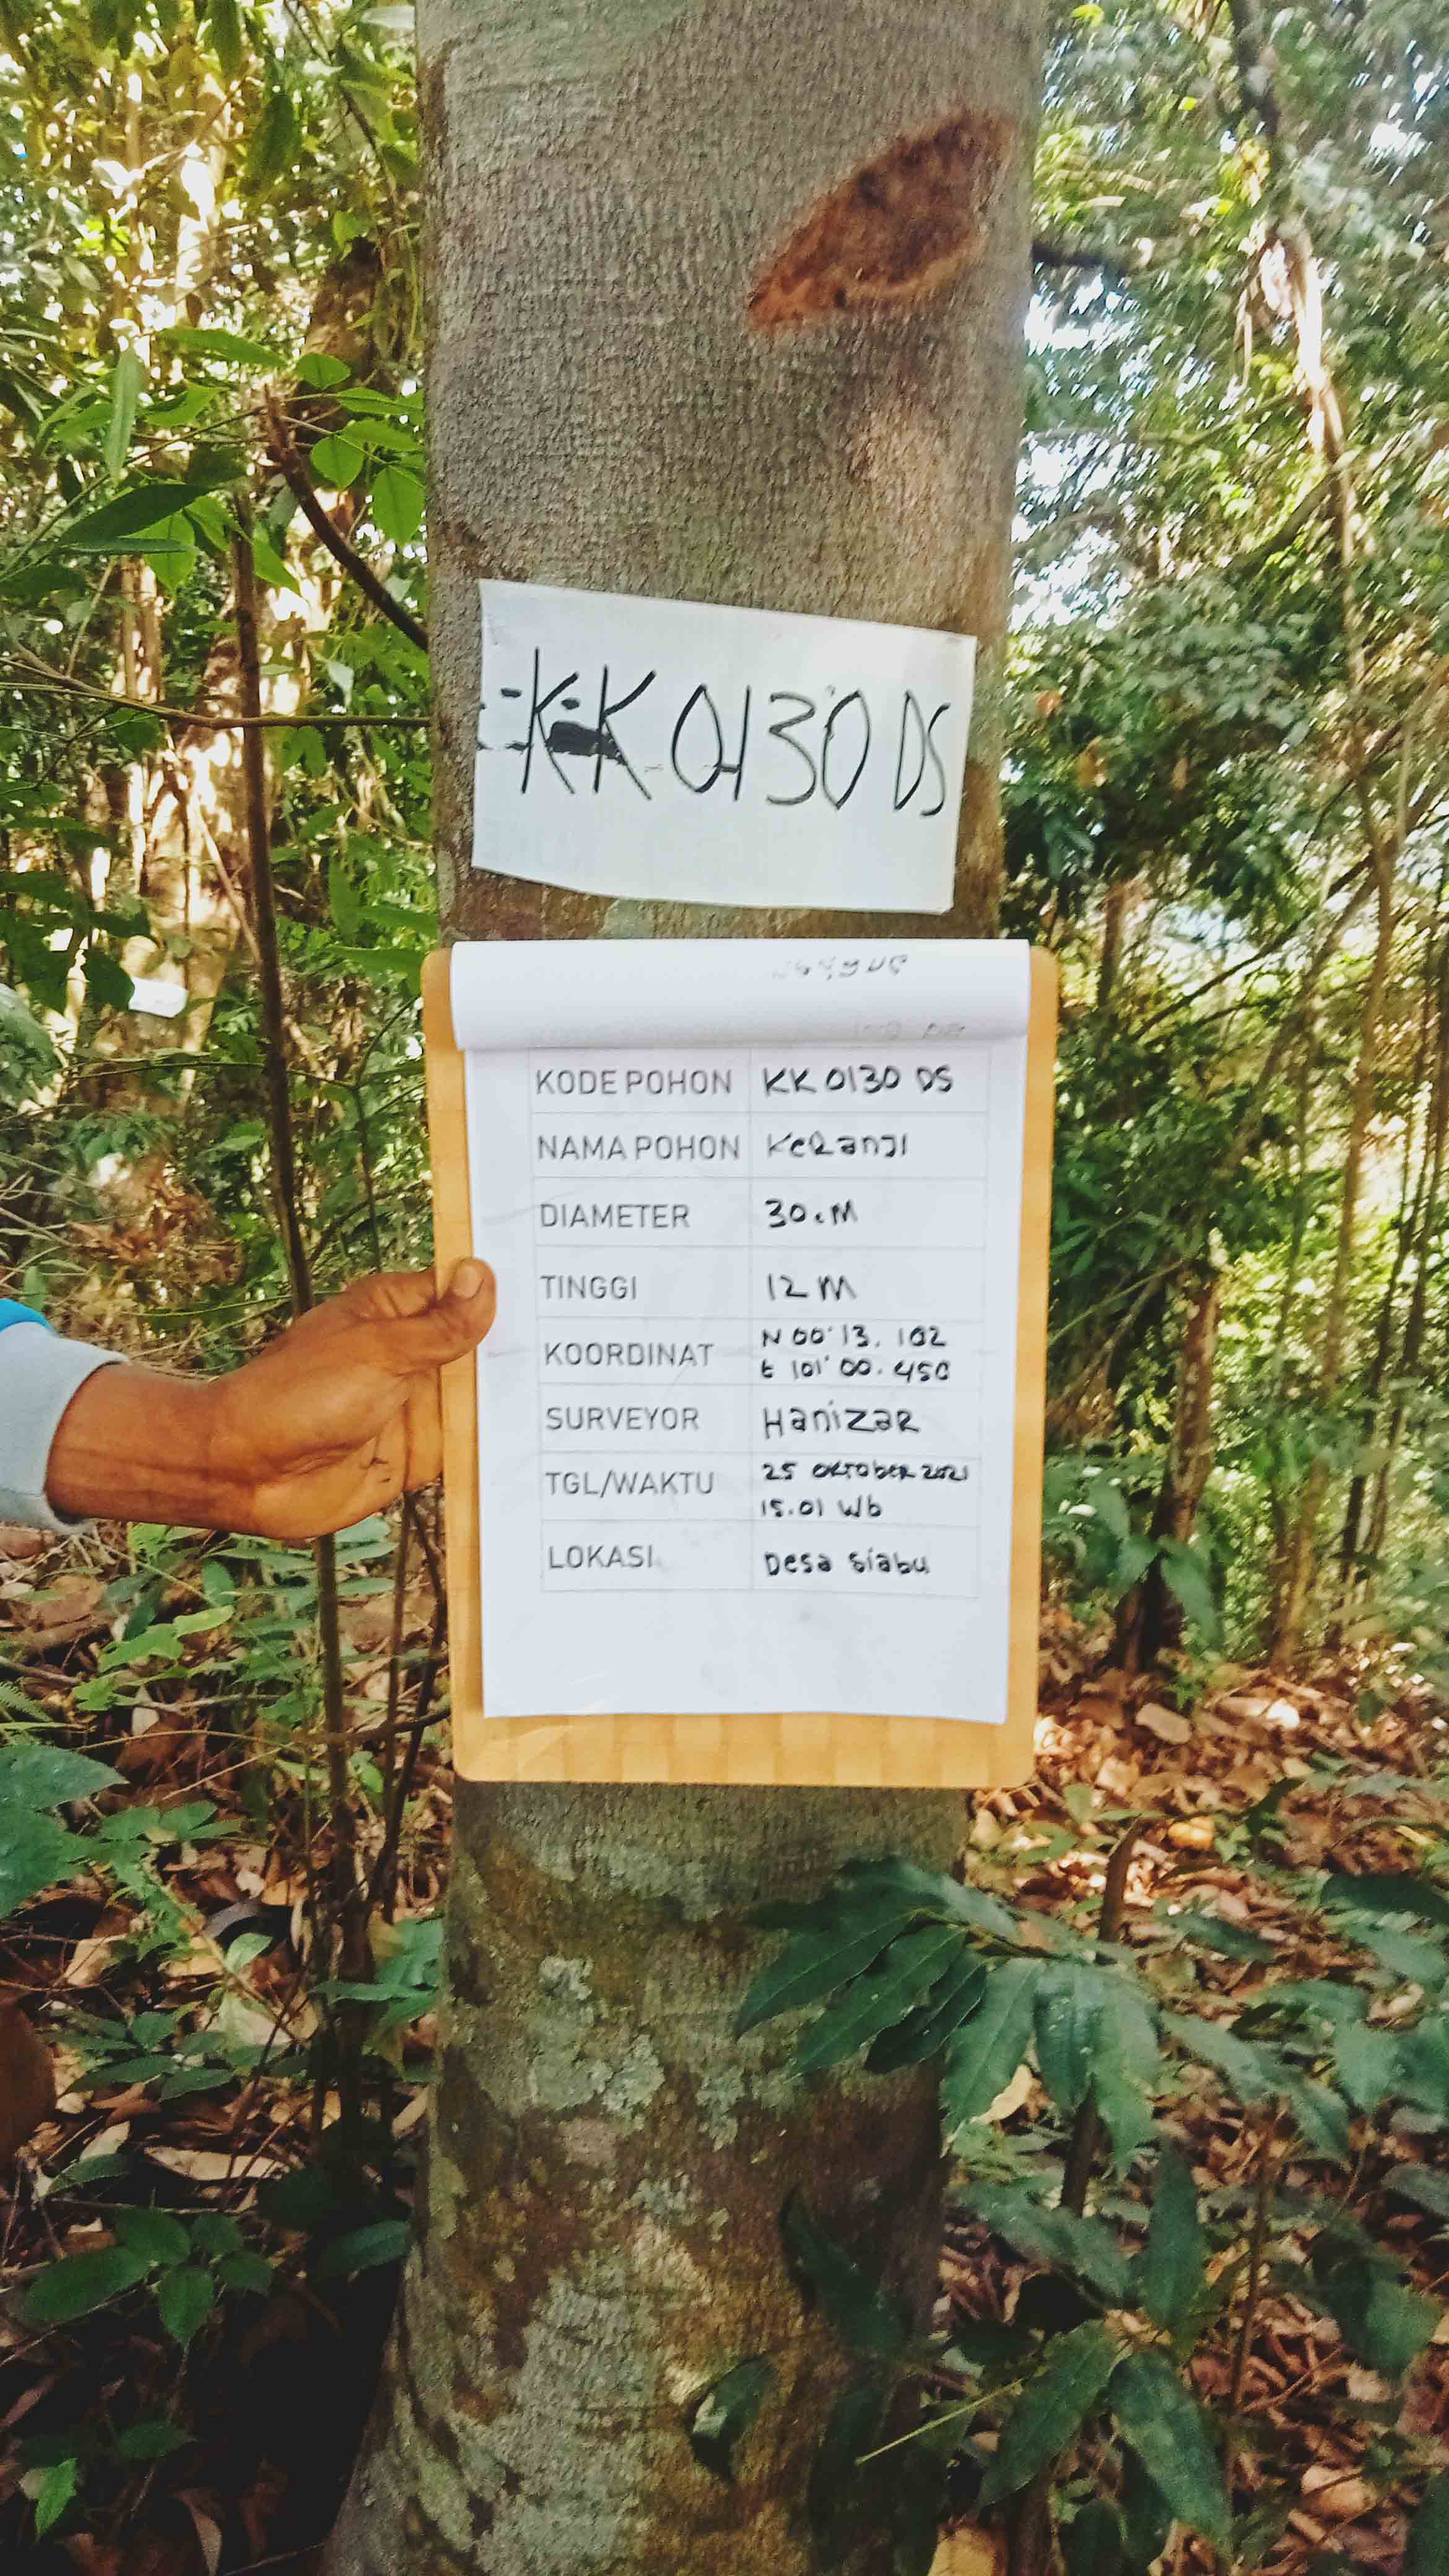 KK 0130 DS
KODE POHON KK 0130 DS
NAMA POHON KeRanji
DIAMETER 30cM
TINGGI 12 M
KOORDINAT N 00° 13. 102
E 101° 00. 450
SURVEYOR HanizaR
TGL/WAKTU 25 OKTObeR 2021
15.01 Wib
LOKASI Desa Siabu